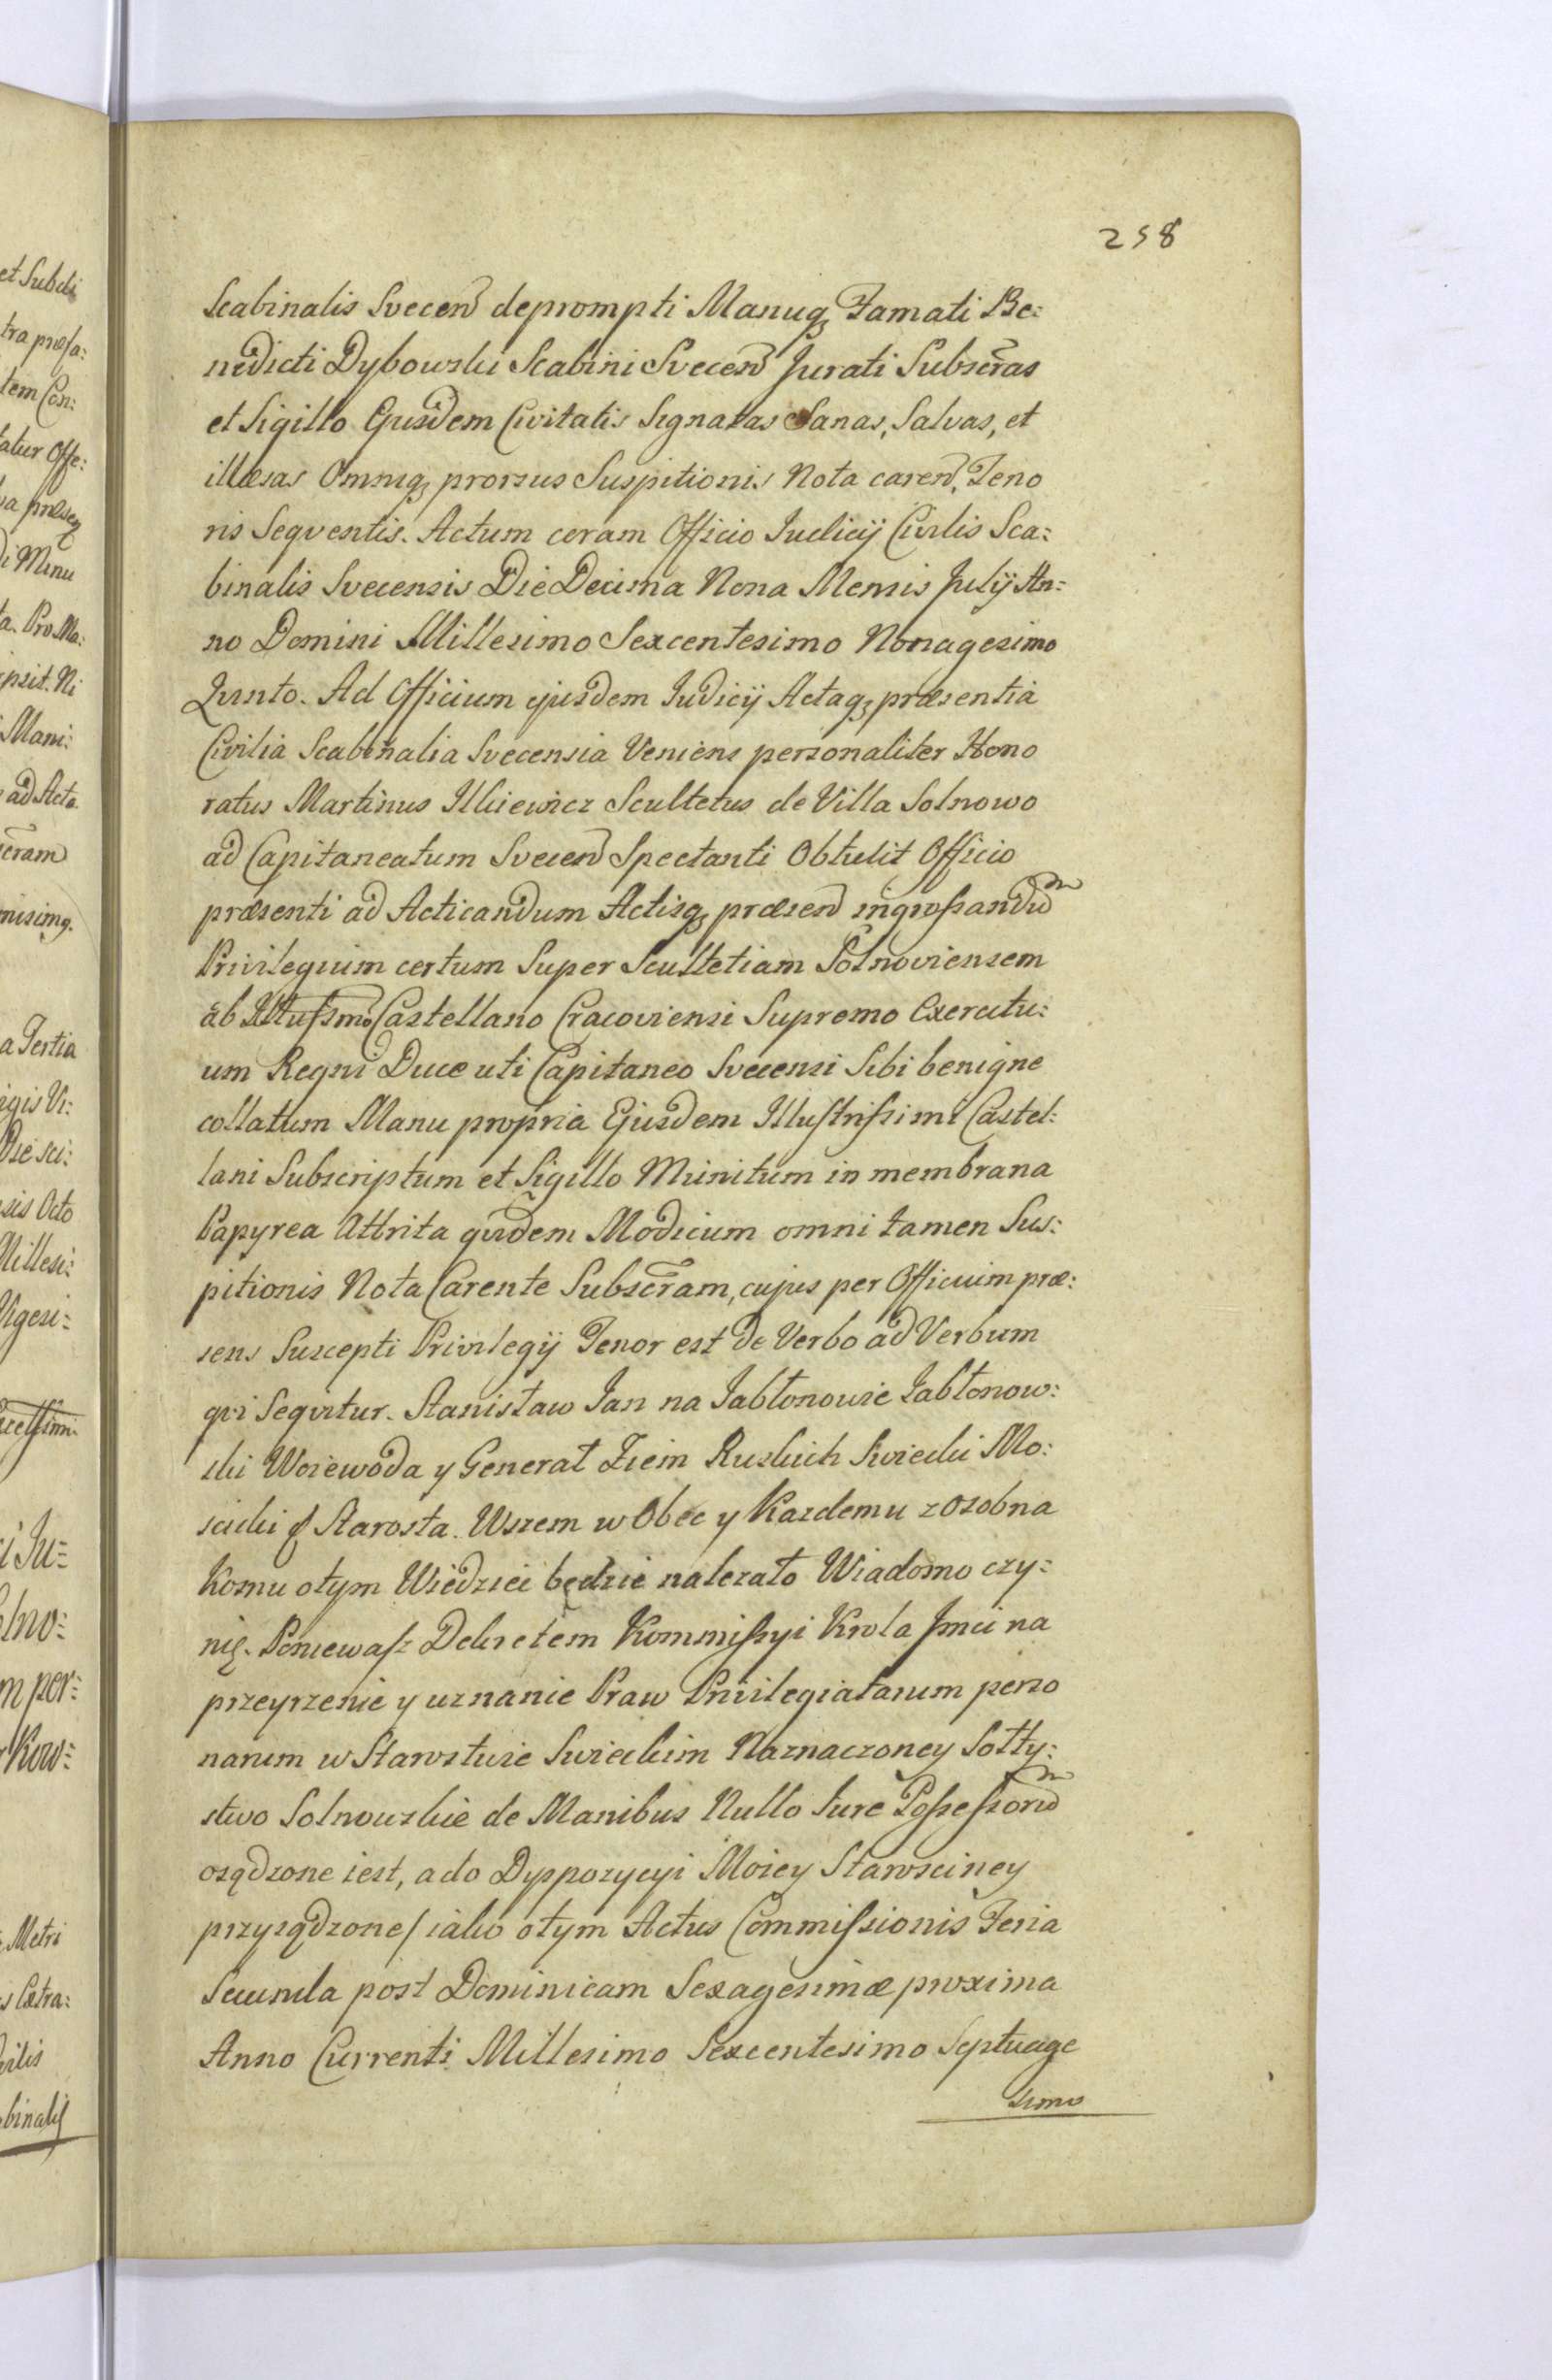 258
Scabinalis Svecen̄ deprompti Manuq₃ Famati Be:
nedicti Dybowski Scabini Svecen̄ Jurati Subscr̄as
et Sigillo Ejusdem Civitatis Signatas Sanas, Salvas, et
illæsas Omniq₃ prorsus Suspitionis Nota caren̄. Teno
ris Seqventis. Actum coram Officio Judicij Civilis Sca:
binalis Svecensis Die Decima Nona Mensis Julij An:
no Domini Millesimo Sexcentesimo Nonagesimo
Qvinto. Ad Officium ejusdem Judicij Actaq₃ præsentia
Civilia Scabinalia Svecensia Veniens personaliter Hono
ratus Martinus Ilkiewicz Scultetus de Villa Solnowo
ad Capitaneatum Svecen̄ Spectanti Obtulit Officio
præsenti ad Acticandum Actisq₃ præsen̄ ingrossandū
Privilegium certum Super Scultetiam Solnoviensem
ab Illussmo Castellano Cracoviensi Supremo Exercitu:
um Regni Duce uti Capitaneo Svecensi Sibi benigne
collatum Manu propria Ejusdem Illustrissimi Castel:
lani Subscriptum et Sigillo Munitum in membrana
Papyrea Attrita qvidem Modicum omni tamen Sus:
pitionis Nota Carente Subscr̄am, cujus per Officium præ:
sens Suscepti Privilegij Tenor est de Verbo ad Verbum
qvi Seqvitur. Stanisław Jan na Jabłonowie Jabłonow:
ski Woiewoda y Generał Ziem Ruskich Swiecki Mo:
scicki Starosta. Wszem w Obec y Kazdemu zosobna
Komu otym Wiedziec będzie nalezało Wiadomo czy:
nię. Poniewasz Dekretem Kommissyi Krola Jmci na
przeyrzenie y uznanie Praw Privilegiatarum perso
narum w Starostwie Swieckim Naznaczoney Sołty:
stwo Solnowskie de Manibus Nullo Jure Possessorū
osądzone iest, a do Dyspozycyi Moiey Starosciney
przysądzone/ iako otym Actus Commissionis Feria
Secunda post Dominicam Sexagesimæ proxima
Anno Currenti Millesimo Sexcentesimo Septuage
simo